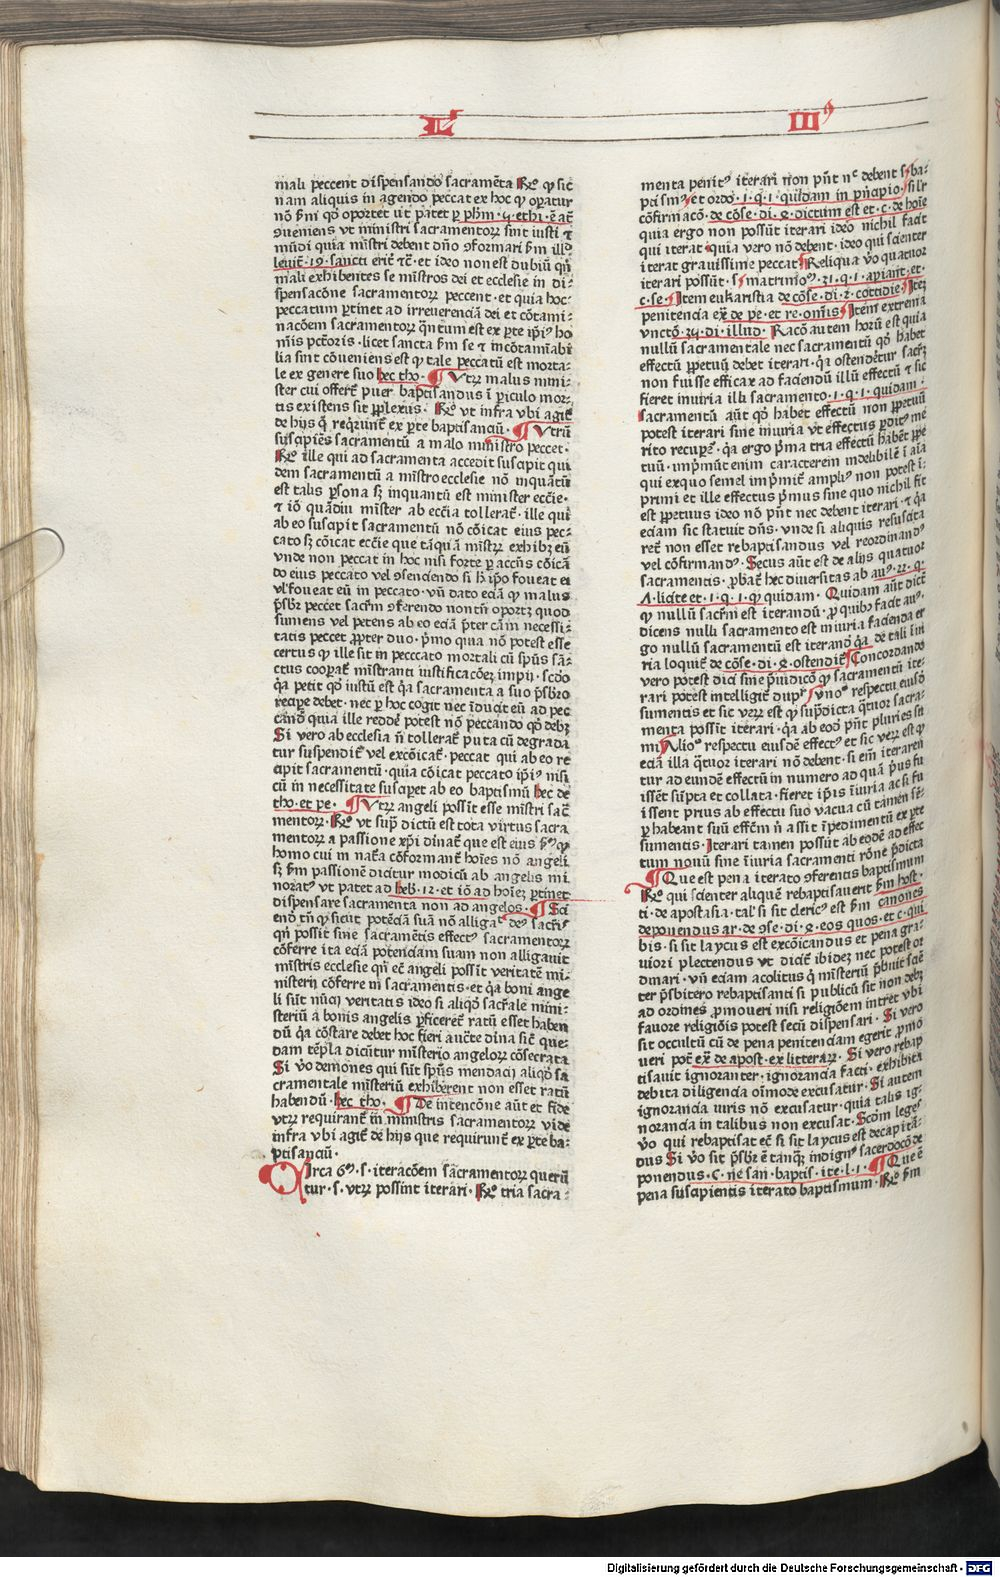 L III⁹
mali peccent dispensando sacramēta Rᵒ ꝙ sic
nam aliquis in agendo peccat ex hoc ꝙ oꝑatur
nō ẜm qđ oportet ut patet ꝑ phm̄ · 4 · ethi · ē aūt
ꝯueniens vt ministri sacramentoꝝ sint iusti ⁊
mūdi quia mīstri debent dn̄o ꝯformari ẜm illđ
leuit̄ · 19 · sancti erit̄ ⁊c̄ · et ideo non est dubiū qn̄
mali exhibentes se mīstros dei et ecclesie in di⸗
spensacōne sacramentoꝝ peccent · et quia hoc
peccatum ꝑtinet ad irreuerenciā dei et cōtami⸗
nacōem sacramentoꝝ qn̄tum est ex ꝑte ip̄iꝰ ho
mīs pctōris · licet sancta ẜm se ⁊ incōtamīabi
lia sint cōueniens est ꝙ tale peccatū est morta⸗
le ex genere suo hec tho · ¶ Vtꝝ malus mini⸗
ster cui offert̄ puer baptisandus ī ꝑiculo mor⸗
tis existens sit ꝑplexus · Rᵒ vt infra vbi agit̄
de hijs q̄ reqrunt̄ ex ꝑte baptisanciū · ¶ Vtrū
suscipiēs sacramentū a malo ministro peccet ·
Rᵒ ille qui ad sacramenta accedit suscipit qui
dem sacramentū a mīstro ecclesie nō inquātū
est talis ꝑsona sꝫ inquantū est minister ecc̄ie ·
⁊ iō quādiu mīster ab ecc̄ia tollerat̄ · ille qui
ab eo suscipit sacramentū nō cōicat eius pec⸗
cato sꝫ cōicat ecc̄ie que tāquā mīstꝝ exhibꝫ eū
vnde non peccat in hoc nisi forte ꝑ accn̄s cōicā
do eius peccato vel ꝯsenciendo si ip̄o foueat ei
vl̓ foueat eū in peccato · vn̄ dato eciā ꝙ malus
p̄sbr̄ peccet sacr̄m ꝯferendo non tn̄ oportꝫ quod
sumens vel petens ab eo eciā p̄ter cām necessi⸗
tatis peccet ꝓpter duo · p̄mo quia nō potest esse
certus ꝙ ille sit in pecccato mortali cū sp̄us sā⸗
ctus cooperat̄ mīstranti iustificacōeꝫ impij · scđo
q̄a petit qđ iustū est q̄a sacramenta a suo p̄sbr̄o
recipe debet · nec ꝑ hoc cogit nec īducit eū ad pec
candū quia ille reddē potest nō peccando qđ debꝫ
Si vero ab ecclesia n̄ tollerat̄ puta cū degrada
tur suspendit̄ vel excōicat̄ · peccat qui ab eo re
cipit sacramentū · quia cōicat peccato ip̄iꝰ nisi
cū in necessitate susciꝑet ab eo baptismū hec de
tho · et pe · ¶ Vtꝝ angeli possīt esse mīstri sac̄
mentoꝝ · Rᵒ vt sup̄ dictū est tota virtus sacra
mentoꝝ a passione xp̄i dinat̄ que est eius ẜm ꝙ
homo cui in nat̄a cōformant̄ hoīes nō angeli
sꝫ ẜm passionē dicitur modicū ab angelis mi
noratꝰ vt patet ad heb · 12 · et iō ad hoīeꝫ ꝑtinet
dispensare sacramenta non ad angelos · ¶ Sci
end̄ tn̄ ꝙ sicut potēciā suā nō alligat deꝰ sacr̄is
qn̄ possit sine sacramētis effectꝰ sacramentoꝝ
cōferre ita eciā potenciam suam non alligauit
mīstris ecclesie qn̄ ec̄ angeli possīt veritatē mi⸗
nisterij cōferre in sacramentis · et q̄a boni ange
li sūt nūcij veritatis ideo si aliqđ sacr̄ale mini⸗
steriū a bonis angelis ꝑficeret̄ ratū esset haben
dū q̄a cōstare debet hoc fieri aucte dina sic̄ que⸗
dam tēpla dicūtur mīsterio angeloꝝ cōsecrata
Si vo demones qui sūt sp̄us mendacij aliqđ sa
cramentale mīsteriū exhiberent non esset ratū
habendū · hec tho · ¶ De intencōne aūt et fide
vtꝝ requirant̄ in ministris sacramentoꝝ vide
infra vbi agit̄ de hijs que requirunt̄ ex ꝑte ba⸗
ptisanciū ·
Circa 6ᵐ · s · iteracōem sacramentoꝝ querū
tur · s · vtꝝ possint iterari · Rᵒ tria sacra⸗
menta penitꝰ iterari non pn̄t nᶜ debent s · ba⸗
ptismꝰ et ordo · 1 · q · 1 · quidam in p̄ncipio · silr̄
cōfirmacō · de cōse · di · 8 · dictum est et · c · de hoīe
quia ergo non possūt iterari ideo nichil facit
qui iterat · quia vero nō debent · ideo qui scienter
iterat grauissime peccat · Reliqua vo quatuor
iterari possūt · s · matrimoꝰ · 31 · q · 1 · apiant · et ·
c · se · Item eukaristia de cōse · di · 2 · cottidie · Itē
penitencia ex̄ de pe · et re · om̄is · Item extrema
vnctō · 34 · di · illud · Racō autem horū est quia
nullū sacramentale nec sacramentū qđ habet
effectū ꝑpetuū debet iterari · q̄a ostenderetur sacr̄
non fuisse efficax ad faciendū illū effectū ⁊ sic
fieret iniuria illi sacramento · 1 · q · 1 · quidam ·
Sacramentū aūt qđ habet effectū non ꝑpetuū
potest iterari sine iniuria vt effectus ꝑditꝰ me
rito recupet̄ · q̄a ergo p̄ma tria effectū habēt ꝑpe
tuū · imp̄mūt enim caracterem indelibilē ī aīa
qui exquo semel imp̄mit̄ ampliꝰ non potest ī⸗
primi et ille effectus p̄mus sine quo nichil fit
est ꝑpetuus ideo nō pn̄t nec debent iterari · ⁊ q̄a
eciam sic statuit dn̄s · vnde si aliquis resuscita
ret̄ non esset rebaptisandus vel reordinandꝰ
vel cōfirmandꝰ · Secus aūt est de alijs quatuor
sacramentis · ꝓbat̄ hec diuersitas ab auꝰ · 22 · q ·
4 · licite et · 1 · q · 1 · ꝙ quidam · Quidam aūt dict̄
ꝙ nullū sacr̄m est iterandū · ꝑ quibꝰ facit auꝰ ·
dicens nulli sacramento est iniuria facienda er
go nullū sacramentū est iterand̄ q̄a de tali iniu
ria loquit̄ de cōse · di · 8 · ostendit̄ · Concordando
vero potest dici sine p̄iudicō ꝙ sacramentū ite⸗
rari potest intelligit̄ dupl̄r · vnoꝰ respectu eiusđ
sumentis et sic veꝝ est ꝙ sup̄dicta q̄tuor sacra⸗
menta possīt iterari · q̄a ab eođ pn̄t pluries su
mi · Alioꝰ respectu eiusdē effectꝰ et sic veꝝ est ꝙ
eciā illa q̄tuor iterari nō debent · si em̄ iteraren̄
tur ad eundē effectū in numero ad quā p̄us fu
issēt sūpta et collata · fieret ip̄is īiuria ac si fu
issent prius ab effectu suo vacua cū tamen sē⸗
ꝑ habeant suū effc̄m n̄ assit īpedimentū ex ꝑte
sumentis · Iterari tamen possūt ab eodē ad effec
tum nouū sine īiuria sacramenti rōne p̄dicta
¶ Que est pena iterato ꝯferentis baptismum
Rᵒ qui scienter aliquē rebaptisauerit ẜm host ·
ti · de apostasia · tal̓ si sit clericꝰ est ẜm canones
deponendus ar · de ꝯse · di · 8 · eos quos · et c · qui
bis · si sit laycus est excōicandus et pena gra⸗
uiori plectendus vt dicit̄ ibidez nec potest or
dinari · vn̄ eciam acolitus q̄ mīsteriū p̄buit sciē
ter p̄sbitero rebaptisanti si publicū sit non debꝫ
ad ordines ꝓmoueri nisi religiōem intret vbi
fauore religiōis potest secū dispensari · Si vero
sit occultū cū de pena penitenciam egerit ꝓmo
ueri pot̄ ex̄ de apost · ex litterarꝝ · Si vero rebap
tisauit ignoranter · ignorancia facti · exhibita
debita diligencia oīmode excusatur · Si autem
ignorancia iuris nō excusatur · quia talis ig⸗
norancia in talibus non excusat · Scđm leges
vo qui rebaptisat ec̄ si sit laycus est decapitā⸗
dus Si vo sit p̄sbr̄ ē tanqꝫ indignꝰ sacerdocō de
ponendus · C · ne san · baptis · ite · l · 1 · ¶ Que ē
pena suscipientis iterato baptismum · Rᵒ ẜm
Digitalisierung gefördert durch die Deutsche Forschungsgemeinschaft - DFG